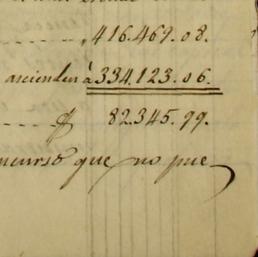 416.469.08.
ascienden à 334.123.06.
$ 82.345.99.
ncurso que no pue